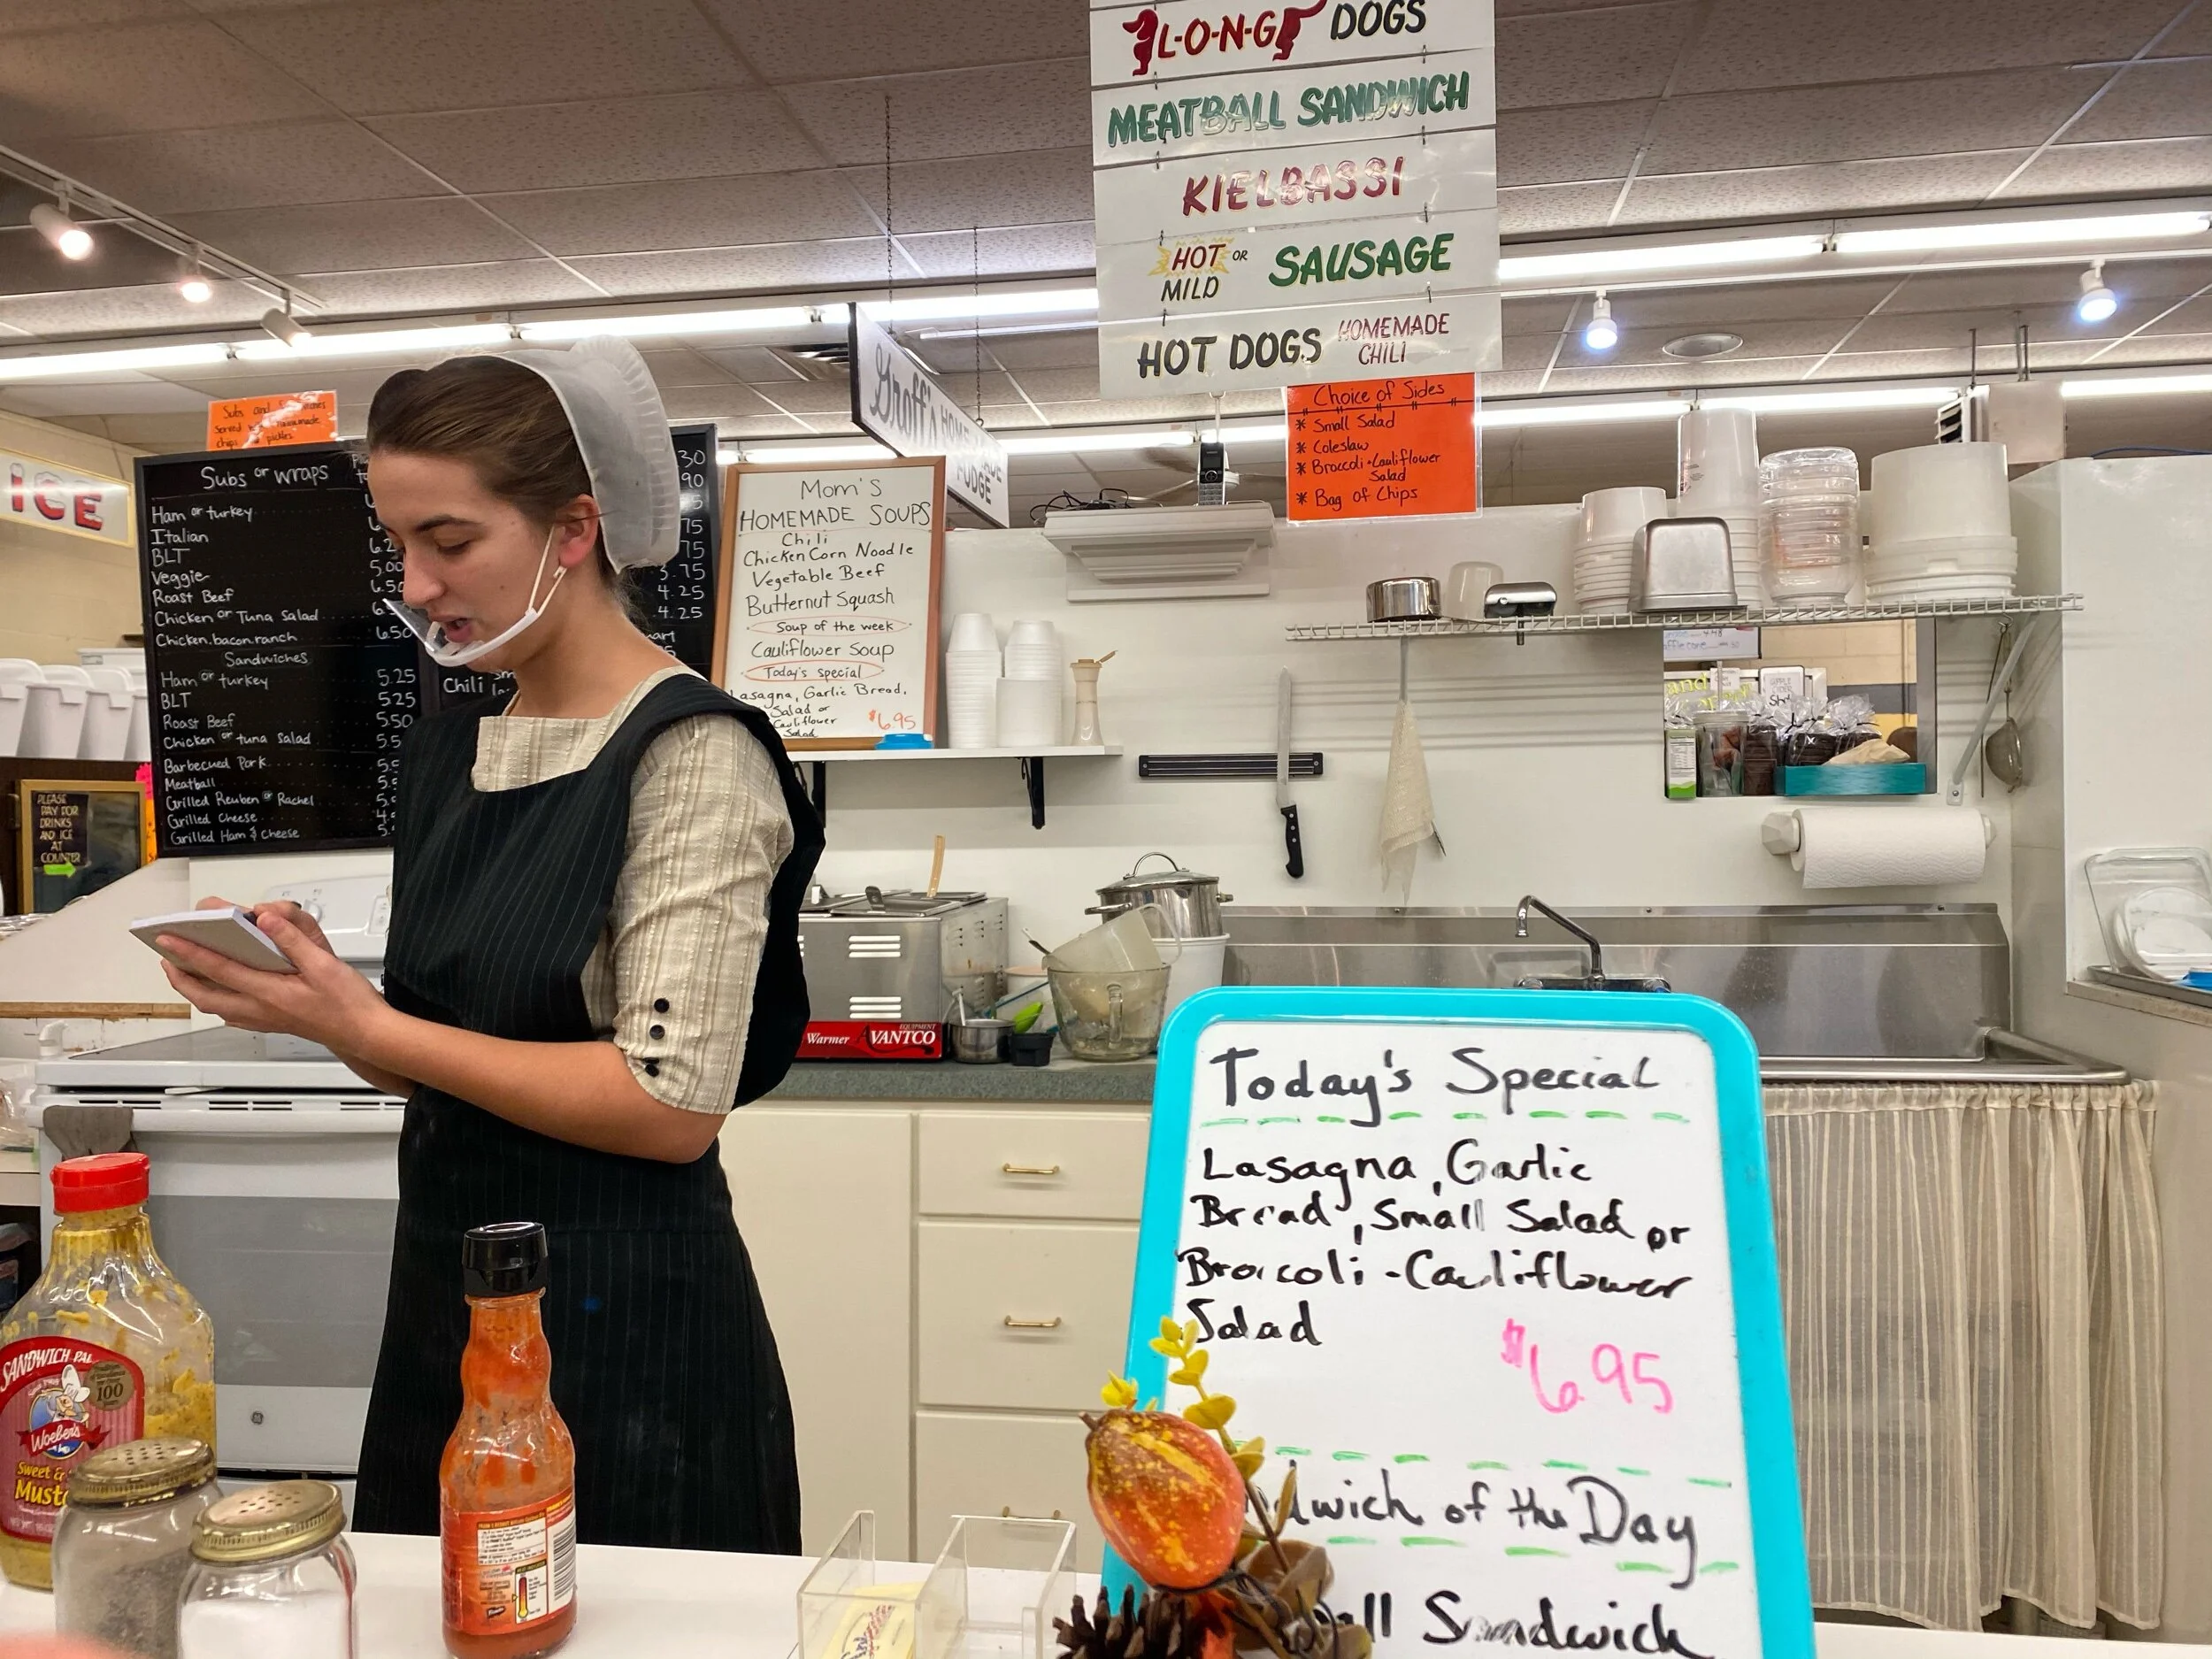 L-O-N-G DOGS
MEATBALL SANDWICH
KIELBASSI
HOT OR MILD SAUSAGE
HOT DOGS HOMEMADE CHILI
Choice of Sides
* Small Salad
* Coleslaw
* Broccoli-Cauliflower
Salad
* Bag of Chips
Groff's HOME
FUDGE
ICE
Subs and
served
chips pickles
Subs or wraps
Ham or turkey
Italian
BLT 5.00
Veggie 6.50
Roast Beef
Chicken or Tuna Salad
Chicken.bacon.ranch 6.50
Sandwiches
Ham or turkey 5.25
BLT 5.25
Roast Beef 5.50
Chicken or tuna salad
Barbecued Pork
Meatball
Grilled Reuben or Rachel
Grilled Cheese
Grilled Ham & Cheese
30
90
75
75
3.75
4.25
4.25
Chili
PLEASE
PAY FOR
DRINKS
AND ICE
AT
COUNTER
Mom's
HOMEMADE SOUPS
Chili
Chicken Corn Noodle
Vegetable Beef
Butternut Squash
Soup of the week
Cauliflower Soup
Today's special
Lasagna, Garlic Bread,
Salad or
Cauliflower
Salad
$6.95
Warmer AVANTCO
EQUIPMENT
Today's Special
Lasagna, Garlic
Bread, Small Salad or
Broccoli-Cauliflower
Salad
$6.95
of the Day
Sandwich
SANDWICH PAL
100
Woeber's
Sweet &